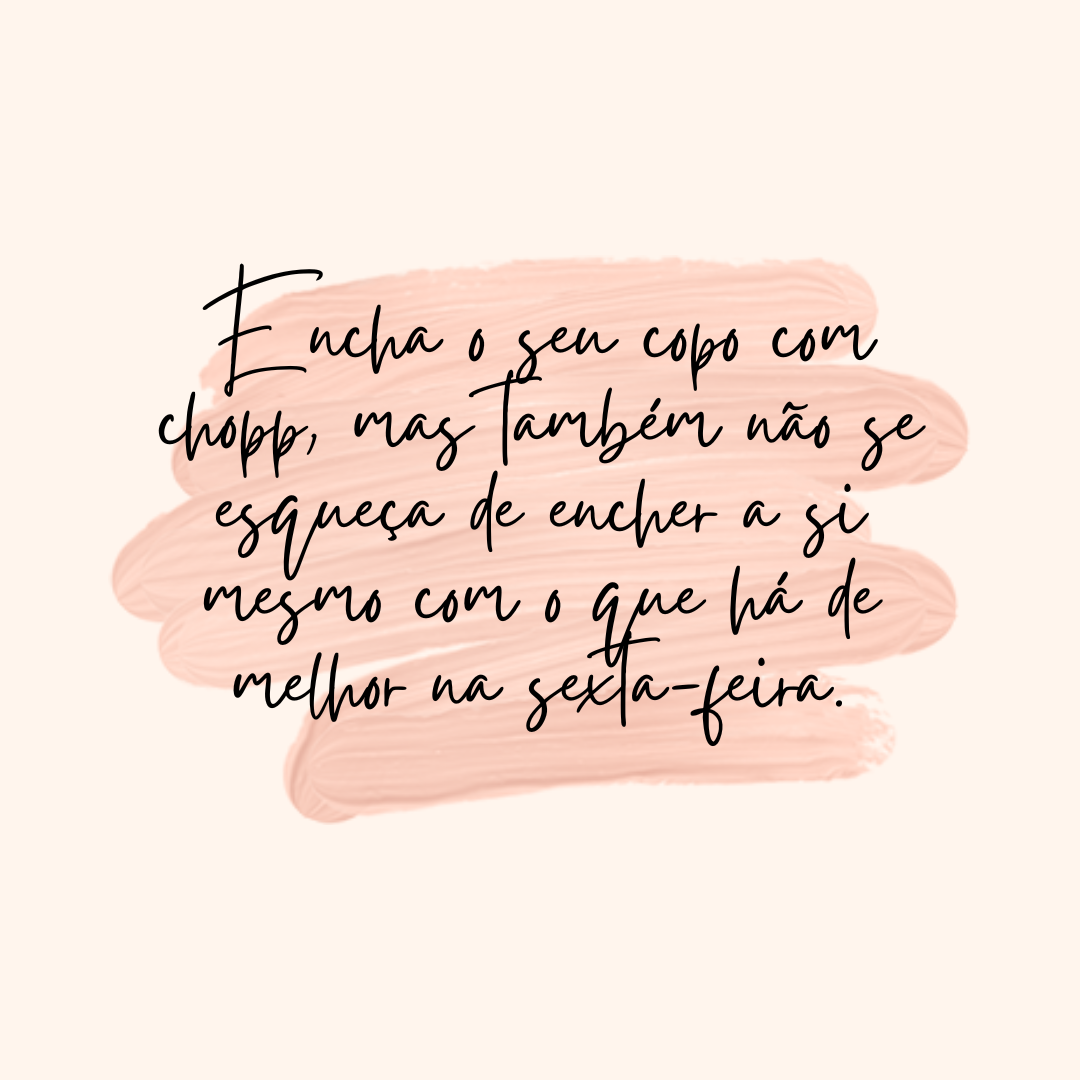 Encha o seu copo com
chopp, mas também não se
esqueça de encher a si
mesmo com o que há de
melhor na sexta-feira.